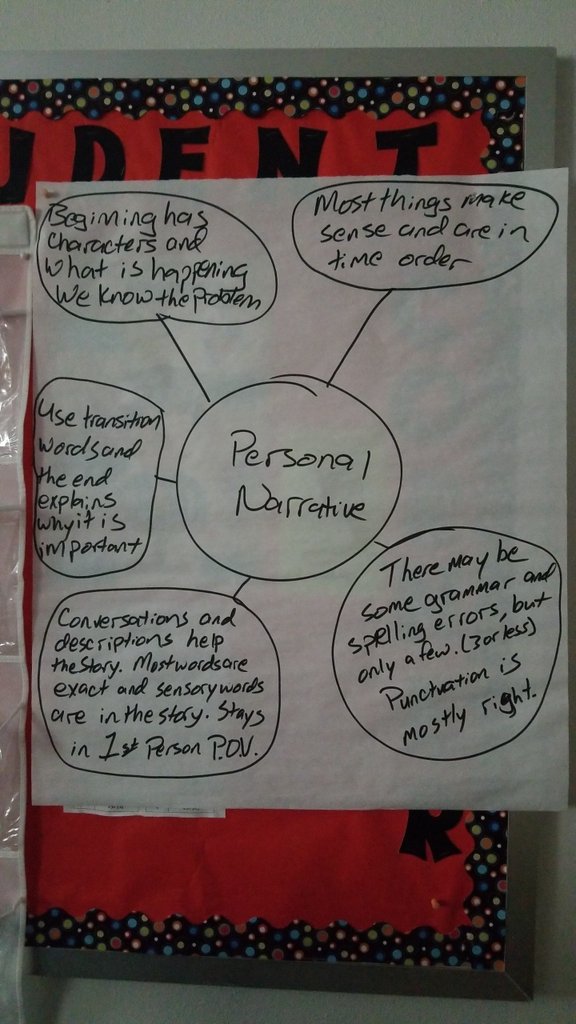 UDENT
Beginning has
characters and
what is happening
We Know the problem
Most things make
sense and are in
time order
Use transition
words and
the end
explains
why it is
important
Personal
Narrative
There may be
some grammar and
spelling errors, but
only a few. (3 or less)
Punctuation is
mostly right.
Conversations and
descriptions help
the story. Most words are
exact and sensory words
are in the story. Stays
in 1st Person P.O.V.
R